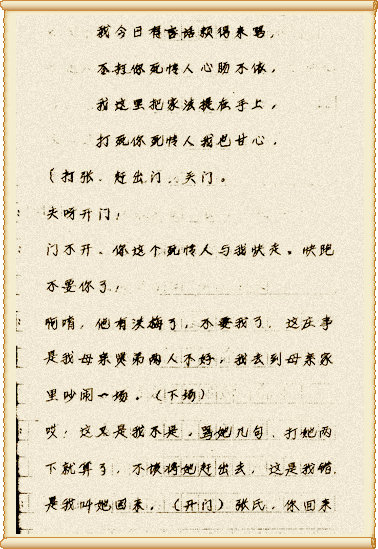 我今日有言话类得来骂,
不打你死情人心肠不依,
我这里把家法提在手上,
打死你死情人我也甘心,
(打张、赶出门,关门。
夫呀开门!
门不开、你这个死情人与我快走。快跑
不要你了,
啊唷,他有法梅了,不要我了,这庄事
是我母亲哭弟两人不好,我去到母亲家
里吵闹一场。(下场)
哎!这又是我不是,骂她几句、打她两
下就算了,不该将她赶出去,这是我错,
是我叫她回来,(开门)张氏,你回来